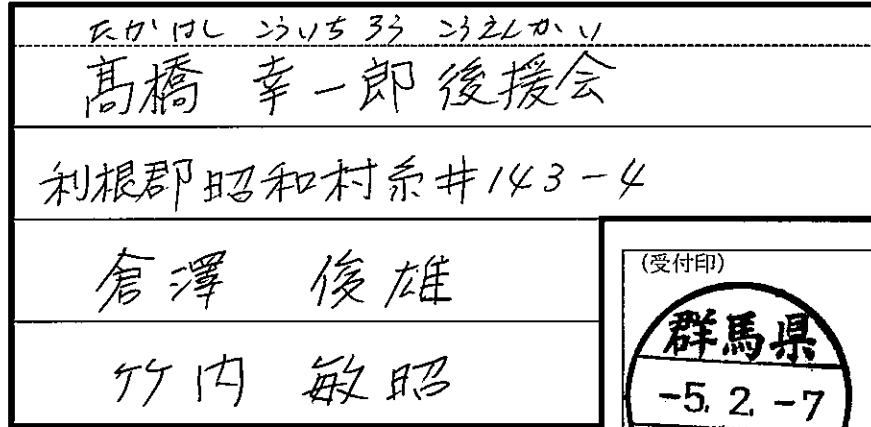 たかはし こういちろう こうえんかい
髙橋 幸一郎後援会
利根郡昭和村糸井143-4
倉澤 俊雄
竹内 敏昭
(受付印)
群馬県
-5.2.-7